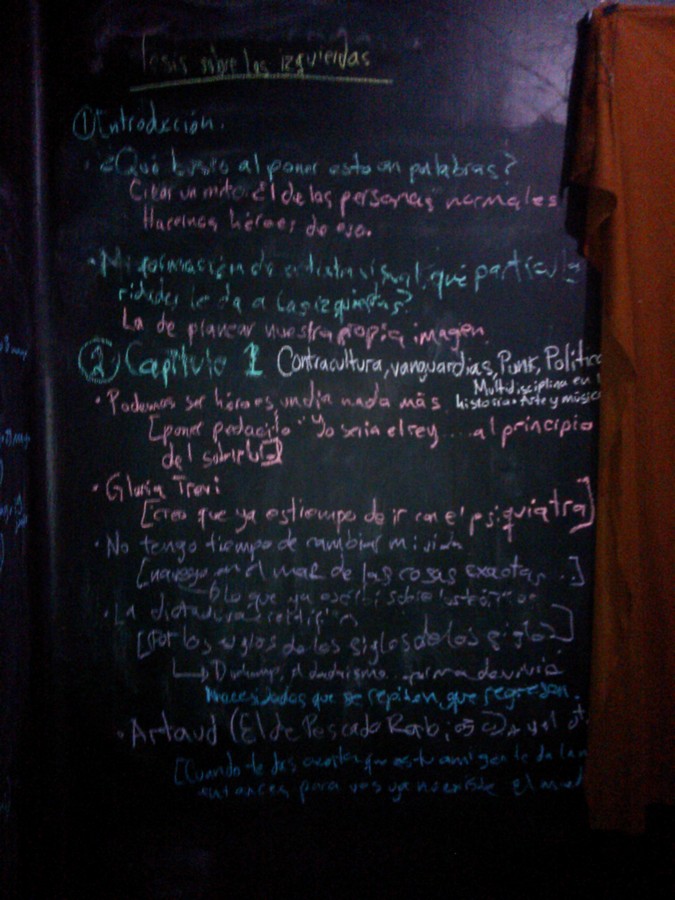 Tesis sobre las izquierdas
① Introducción.
· ¿Qué busco al poner esto en palabras?
Crear un mito. El de las personas normales
Hacernos héroes de eso.
· Mi formación de artista visual, qué particula
ridades le da a las izquierdas?
La de planear nuestra propia imagen.
② Capítulo 1 Contracultura, vanguardias, Punk, Política
Multidisciplina en
historia · Arte y música
· Podemos ser héroes, un día nada más.
[poner pedacito "Yo sería el rey .... al principio
del
· Gloria Trevi
[Creo que ya es tiempo de ir con el psiquiatra]
· No tengo tiempo de cambiar mi vida
[navego en el mar de las cosas exactas ...]
lo que ya escribí sobre
· La dictadura
[Por los siglos de los siglos de los siglos]
el dadaismo forma de vivir
Necesidades que se repiten, que regresan.
· Artaud (El de Pescado Rabioso) y el
[Cuando te das cuenta que es tu amigo
entonces para vos ya no existe el